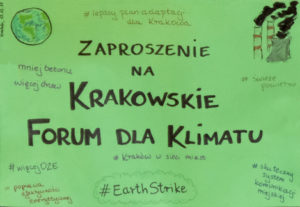 # lepszy plan adaptacji
dla Krakowa
ZAPROSZENIE
NA
mniej betonu
więcej drzew
# świeże
powietrze
KRAKOWSKIE
FORUM DLA KLIMATU
# więcej OZE
# Kraków w sieci miast
# poprawa
efektywności
energetycznej
# EarthStrike
# skuteczny
system
komunikacji
miejskiej